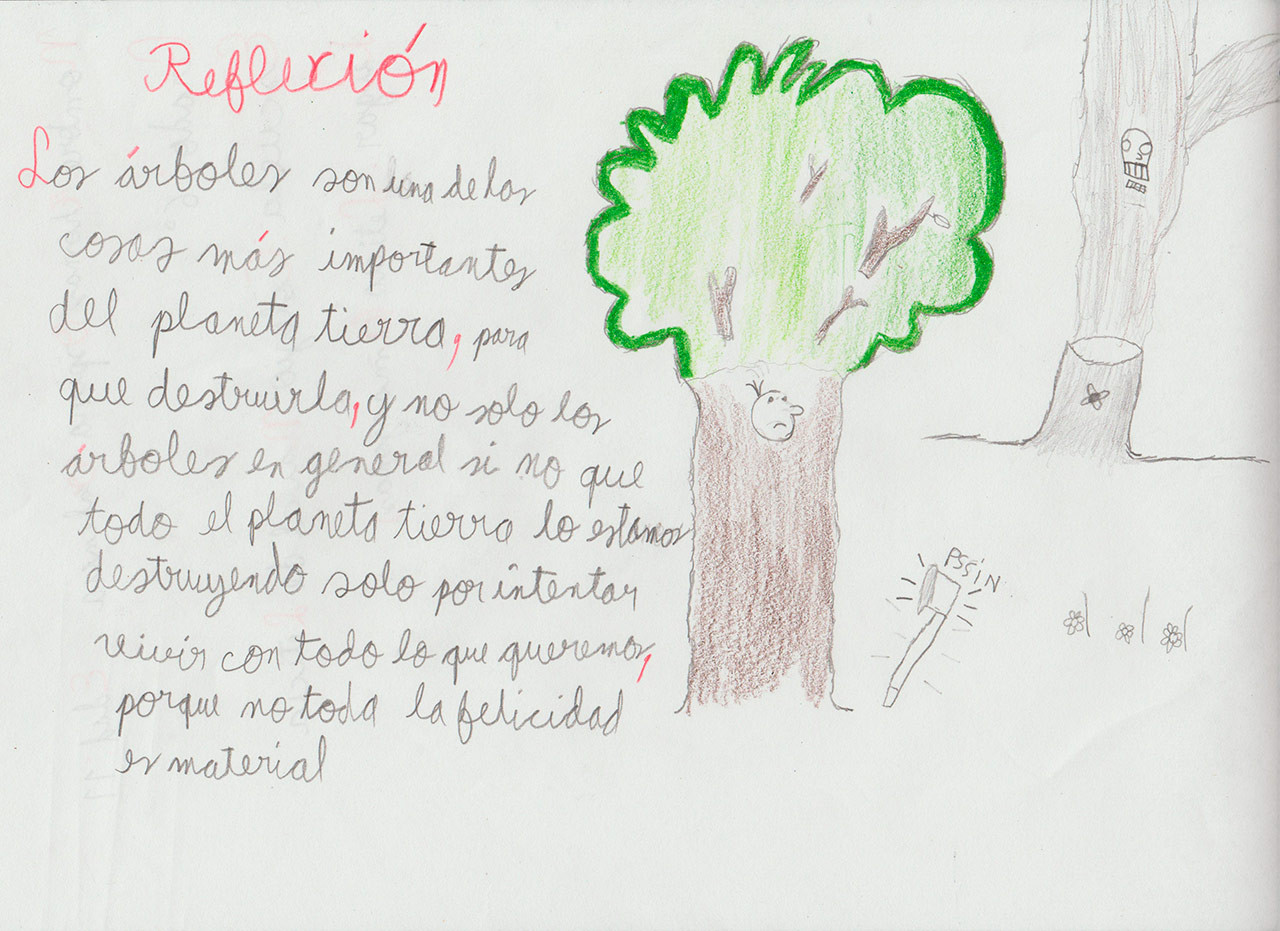 Reflexión
Los árboles son una de las
cosas más importantes
del planeta tierra, para
que destruirla, y no solo los
árboles en general si no que
todo el planeta tierra lo estamos
destruyendo solo por intentar
vivir con todo lo que queremos,
porque no toda la felicidad
es material
PSSIN